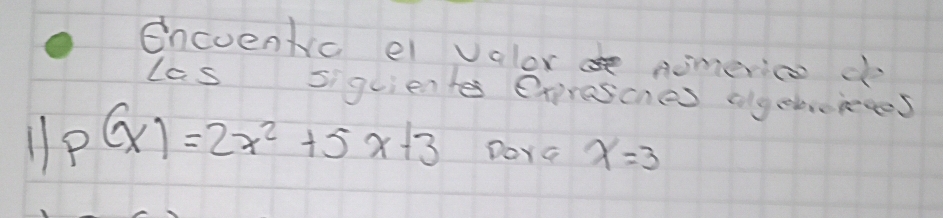 Encuentra el valor de númerico de
las siguientes Expresones algebraicaes
1) P(x) = 2x² + 5x + 3 para x = 3